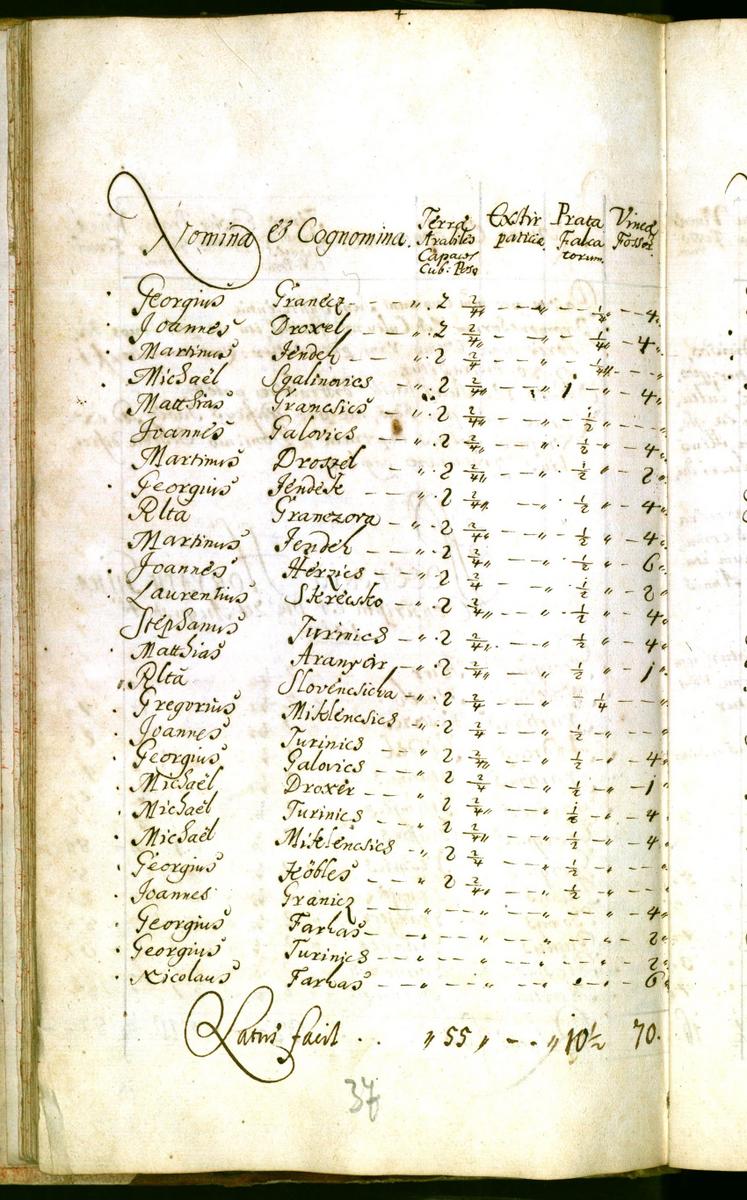 Nomina & Cognomina. Terræ Arabiles Capaces Cub: Pos: Extirpatitiæ Prata Falcatorum. Vineæ Fossor.
Georgius Granecz - - „ 2 2/4 „ - - „ - - 1/4 - - 4 „
Joannes Droxel - - „ 2 2/4 „ - - „ - - 1/4 „ - 4 „
Martinus Jendek - - „ 2 2/4 „ - - „ - - 1/4 „ - - „
Michaël Sgalinovics - „ 2 2/4 „ - - „ 1 - „ - 4 „
Matthias Grancsics - - 1/2 - - - „
Joannes Galovics - „ 2 2/4 „ - - „ - 1/2 „ - 4 „
Martinus Droszel - - „ 2 2/4 „ - - „ - 1/2 „ - 2 „
Georgius Jendek - - „ 2 2/4 „ - - „ - 1/2 „ - 4 „
Rlta Granczova - „ 2 2/4 „ - - „ - 1/2 „ - 4 „
Martinus Jendek - - „ 2 2/4 „ - - „ - 1/2 „ - 6 „
Joannes Herzics - - „ 2 2/4 - - „ - 1/2 „ - 2 „
Laurentius Skrecsko - „ 2 2/4 „ - - „ - 1/2 „ - 4 „
Stephanus Turinics - „ 2 2/4 „ - - „ - 1/2 „ - 4 „
Matthias Aranyár - - „ 2 2/4 „ - - „ - 1/2 „ - 1 „
Rlta Slovencsicha - „ 2 2/4 - - „ - 1/4 - - - „
Gregorius Miklencsics - „ 2 2/4 - - „ - 1/2 „ - - „
Joannes Turinics - - „ 2 2/4 „ - - „ - 1/2 „ - 4 „
Georgius Galovics - - „ 2 2/4 - - „ - 1/2 „ - 1 „
Michaël Droxer - - „ 2 2/4 „ - - „ - 1/2 „ - 4 „
Michaël Turinics - - „ 2 2/4 „ - - „ - 1/2 „ - 4 „
Michaël Miklencsics - „ 2 2/4 - - „ - 1/2 - - - „
Georgius Köbles - - „ 2 2/4 „ - - „ - 1/2 - - - „
Joannes Granicz - - „ - - „ - - „ - - „ - 4 „
Georgius Farkas - - „ - - „ - - „ - - „ - 2 „
Georgius Turinics - - „ - - „ - - „ - - „ - 2 „
Nicolaus Farkas - - „ - - „ - - „ - - „ - 6 „
Latus facit . . „ 55 „ - - „ 10 1/2 70.
37